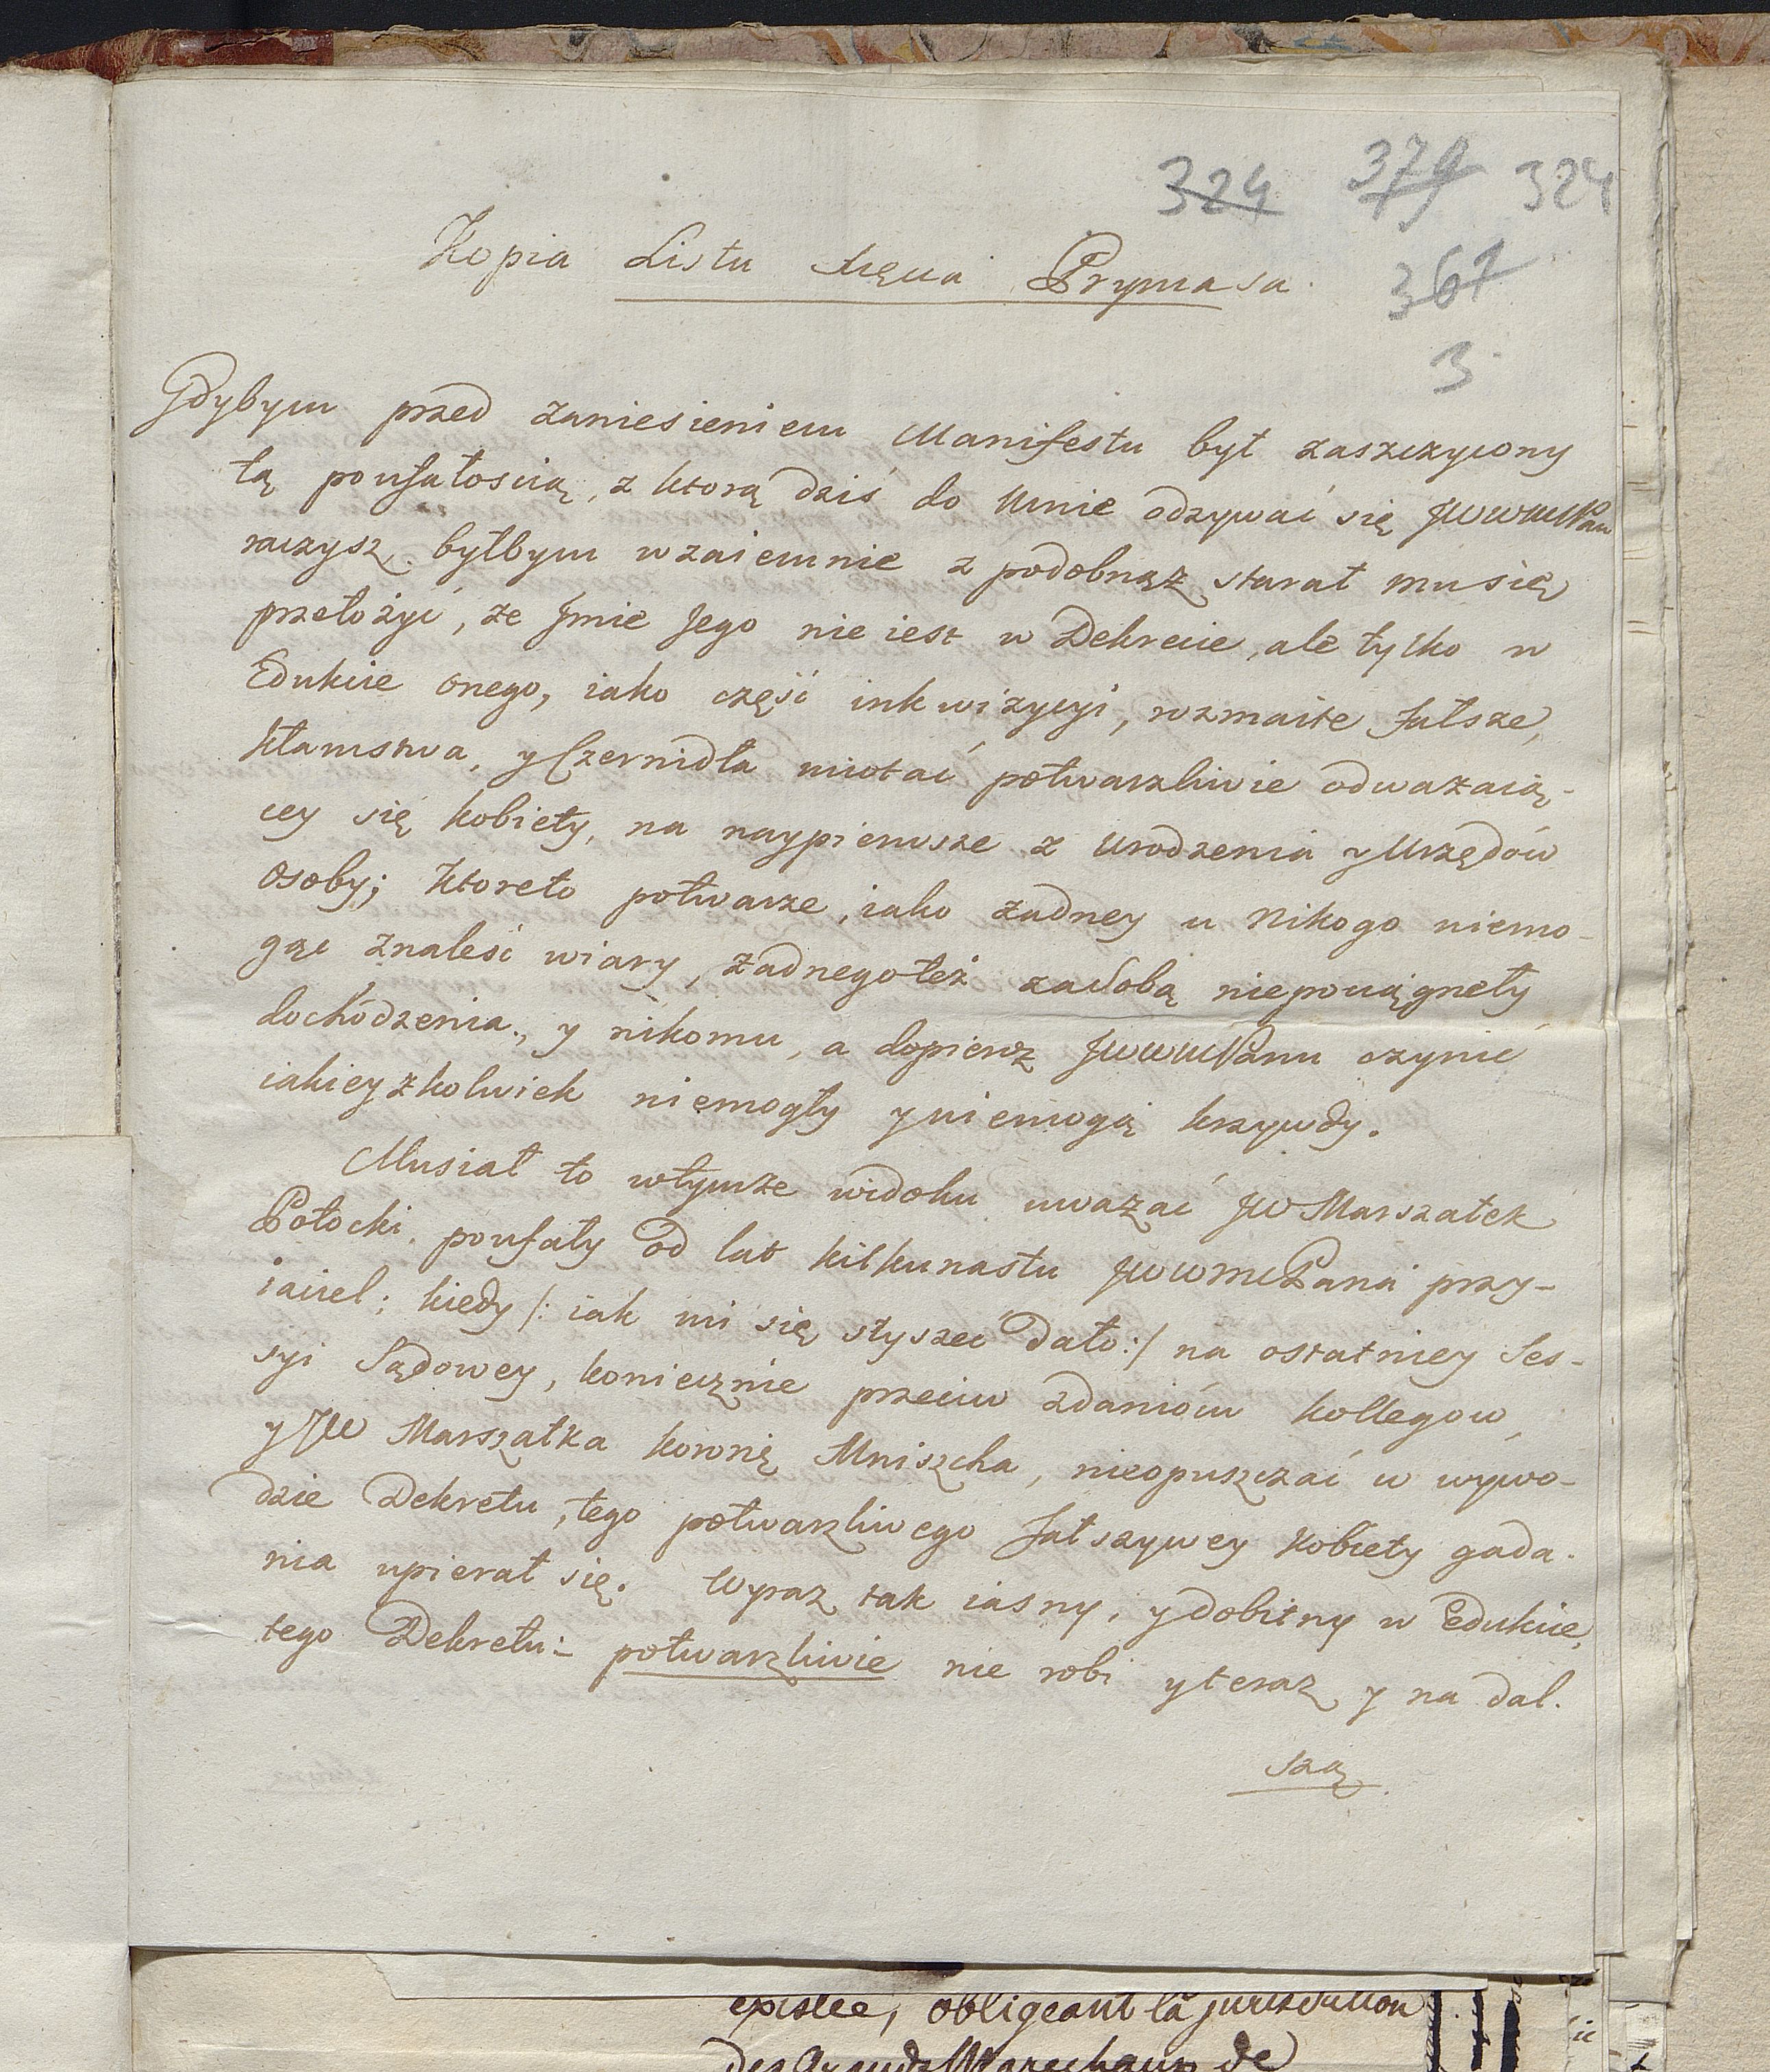 324 379 324
Kopia Listu Xięcia Prymasa.
367
3
Gdybym przed zaniesieniem Manifestu był zaszczycony
tą poufałoscią, z ktorą dziś do Mnie odzywać się JWWMPan
raczysz, byłbym wzaiemnie z podobnąż starał mu się
przełożyć, że Jmie Jego nie iest w Dekrecie, ale tylko w
Edukcie onego, iako część inkwizycyi, rozmaite Fałsze,
kłamstwa, y Czernidła miotać potwarzliwie odważaią-
cey się kobiety, na naypierwsze z Urodzenia y Urzędów
Osoby; ktoreto potwarze, iako żadney u Nikogo niemo-
gąc znaleść wiary, żadnego też za sobą niepociągnęły
dochodzenia, y nikomu, a dopieroż JWWMPanu czynić
iakieyżkolwiek niemogły y niemogą krzywdy.
Musiał to wtymże widoku uważać JW Marszałek
Potocki, poufały od lat kilkunastu JWWMPana przy-
iaciel; kiedy /: iak mi się słyszeć dało :/ na ostatniey Ses-
syi Sądowey, koniecznie przeciw zdaniom kollegow,
y JW Marszałka koronę Mniszcha, nieopuszczać w wywo-
dzie Dekretu, tego potwarzliwego fałszywey kobiety gada-
nia upierał się. Wyraz tak iasny, y dobitny w Edukcie,
tego Dekretu: potwarzliwie nie robi y teraz y na dal.
szą
existée, obligeant la jurisdiction
des Grands Marechaux de